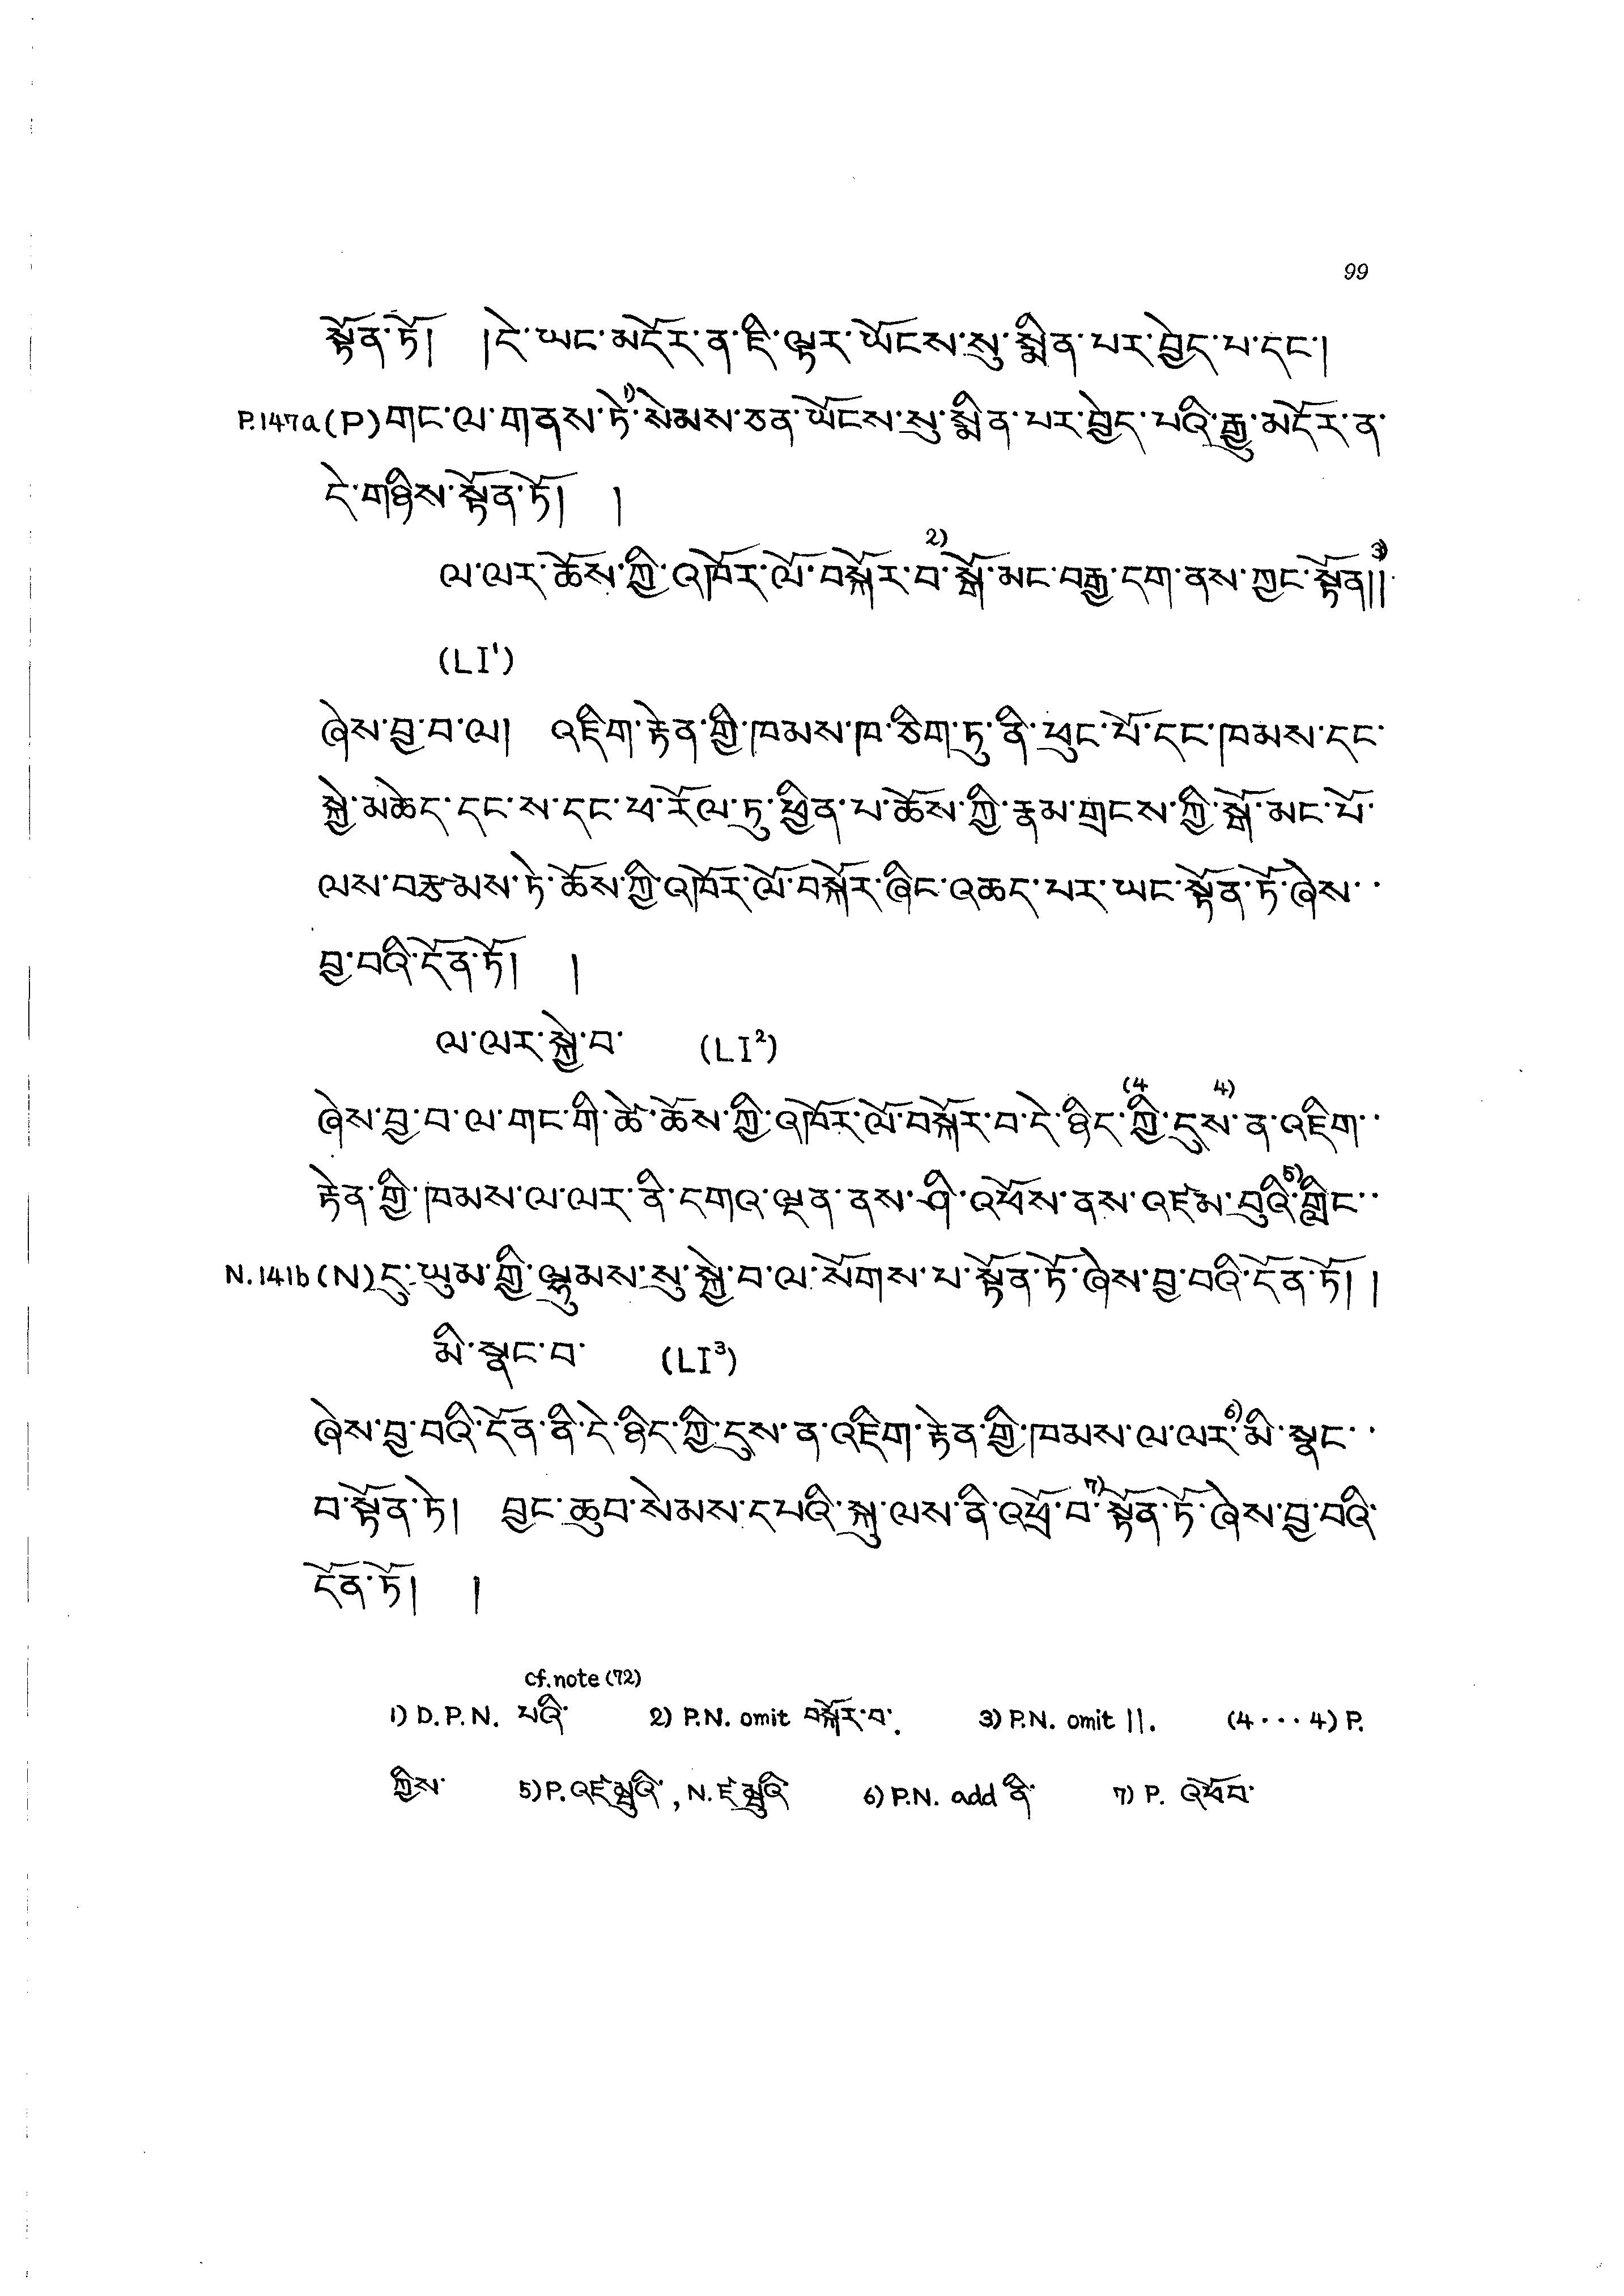 99
སྟོན་ཏོ། །དེ་ཡང་མདོར་ན་ཇི་ལྟར་ཡོངས་སུ་སྨིན་པར་བྱེད་པ་དང་།
P.147a (P) གང་ལ་གནས་ཏེ་1)སེམས་ཅན་ཡོངས་སུ་སྨིན་པར་བྱེད་པའི་རྒྱུ་མདོར་ན་
དེ་གཉིས་སྟོན་ཏོ། །
ལ་ལར་ཆོས་ཀྱི་འཁོར་ལོ་བསྐོར་བ་2)སྒོ་མང་བརྒྱ་དག་ནས་ཀྱང་སྟོན།།3)
(LI¹)
ཞེས་བྱ་བ་ལ། འཇིག་རྟེན་གྱི་ཁམས་ཁ་ཅིག་ཏུ་ནི་ཕུང་པོ་དང་ཁམས་དང་
སྐྱེ་མཆེད་དང་ས་དང་ཕ་རོལ་ཏུ་ཕྱིན་པ་ཆོས་ཀྱི་རྣམ་གྲངས་ཀྱི་སྒོ་མང་པོ་
ལས་བརྩམས་ཏེ་ཆོས་ཀྱི་འཁོར་ལོ་བསྐོར་ཞིང་འཆད་པར་ཡང་སྟོན་ཏོ་ཞེས་··
བྱ་བའི་དོན་ཏོ། །
ལ་ལར་སྐྱེ་བ་ (LI²)
ཞེས་བྱ་བ་ལ་གང་གི་ཚེ་ཆོས་ཀྱི་འཁོར་ལོ་བསྐོར་བ་དེ་ཉིད་(4ཀྱི་དུས་4)ན་འཇིག་··
རྟེན་གྱི་ཁམས་ལ་ལར་ནི་དགའ་ལྡན་ནས་ཤི་འཕོས་ནས་འཛམ་བུའི་5)གླིང་··
N.141b (N) དུ་ཡུམ་གྱི་ལྷུམས་སུ་སྐྱེ་བ་ལ་སོགས་པ་སྟོན་ཏོ་ཞེས་བྱ་བའི་དོན་ཏོ། །
མི་སྣང་བ་ (LI³)
ཞེས་བྱ་བའི་དོན་ནི་དེ་ཉིད་ཀྱི་དུས་ན་འཇིག་རྟེན་གྱི་ཁམས་ལ་ལར་6)མི་སྣང་··
བ་སྟོན་ཏེ། བྱང་ཆུབ་སེམས་དཔའི་སྐུ་ལས་ནི་འཕྲོ་བ་7)སྟོན་ཏོ་ཞེས་བྱ་བའི་
དོན་ཏོ། །
cf. note (72)
1) D.P.N. པའི་ 2) P.N. omit བསྐོར་བ་. 3) P.N. omit །།. (4···4) P.
ཀྱིས་ 5) P. འཛམྦུའི་, N. ཛམྦུའི་ 6) P.N. add ནི་ 7) P. འཕོབ་